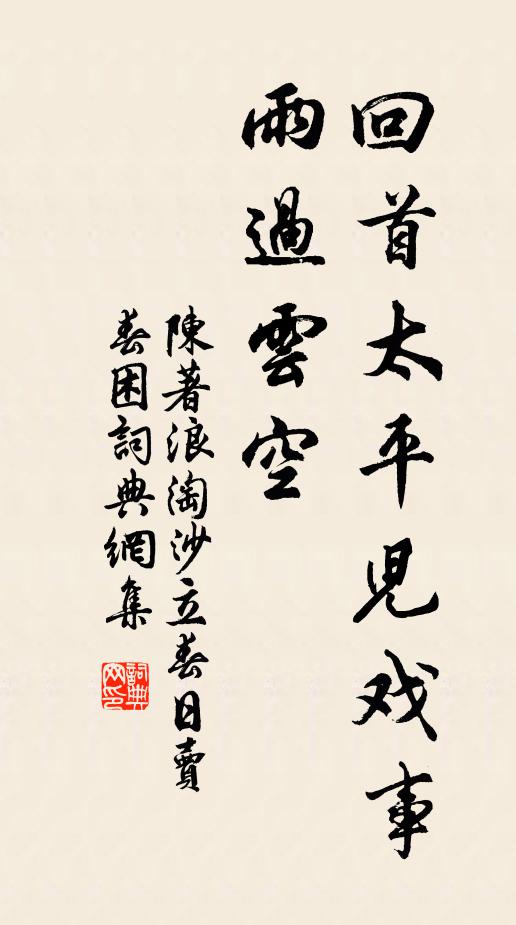 回首太平兒戏事
雨過雲空
陳著浪淘沙立春日賣
春困詞典網集
詞典
网印